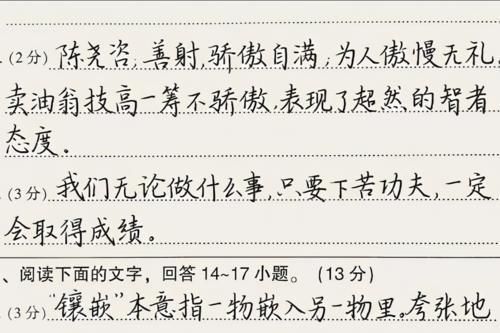 .(2分)陈尧咨,善射,骄傲自满,为人傲慢无礼,
卖油翁技高一筹不骄傲,表现了超然的智者
态度。
.(3分)我们无论做什么事,只要下苦功夫,一定
会取得成绩。
、阅读下面的文字，回答14~17小题。(13分)
.(3分)"镶嵌"本意指一物嵌入另一物里。夸张地